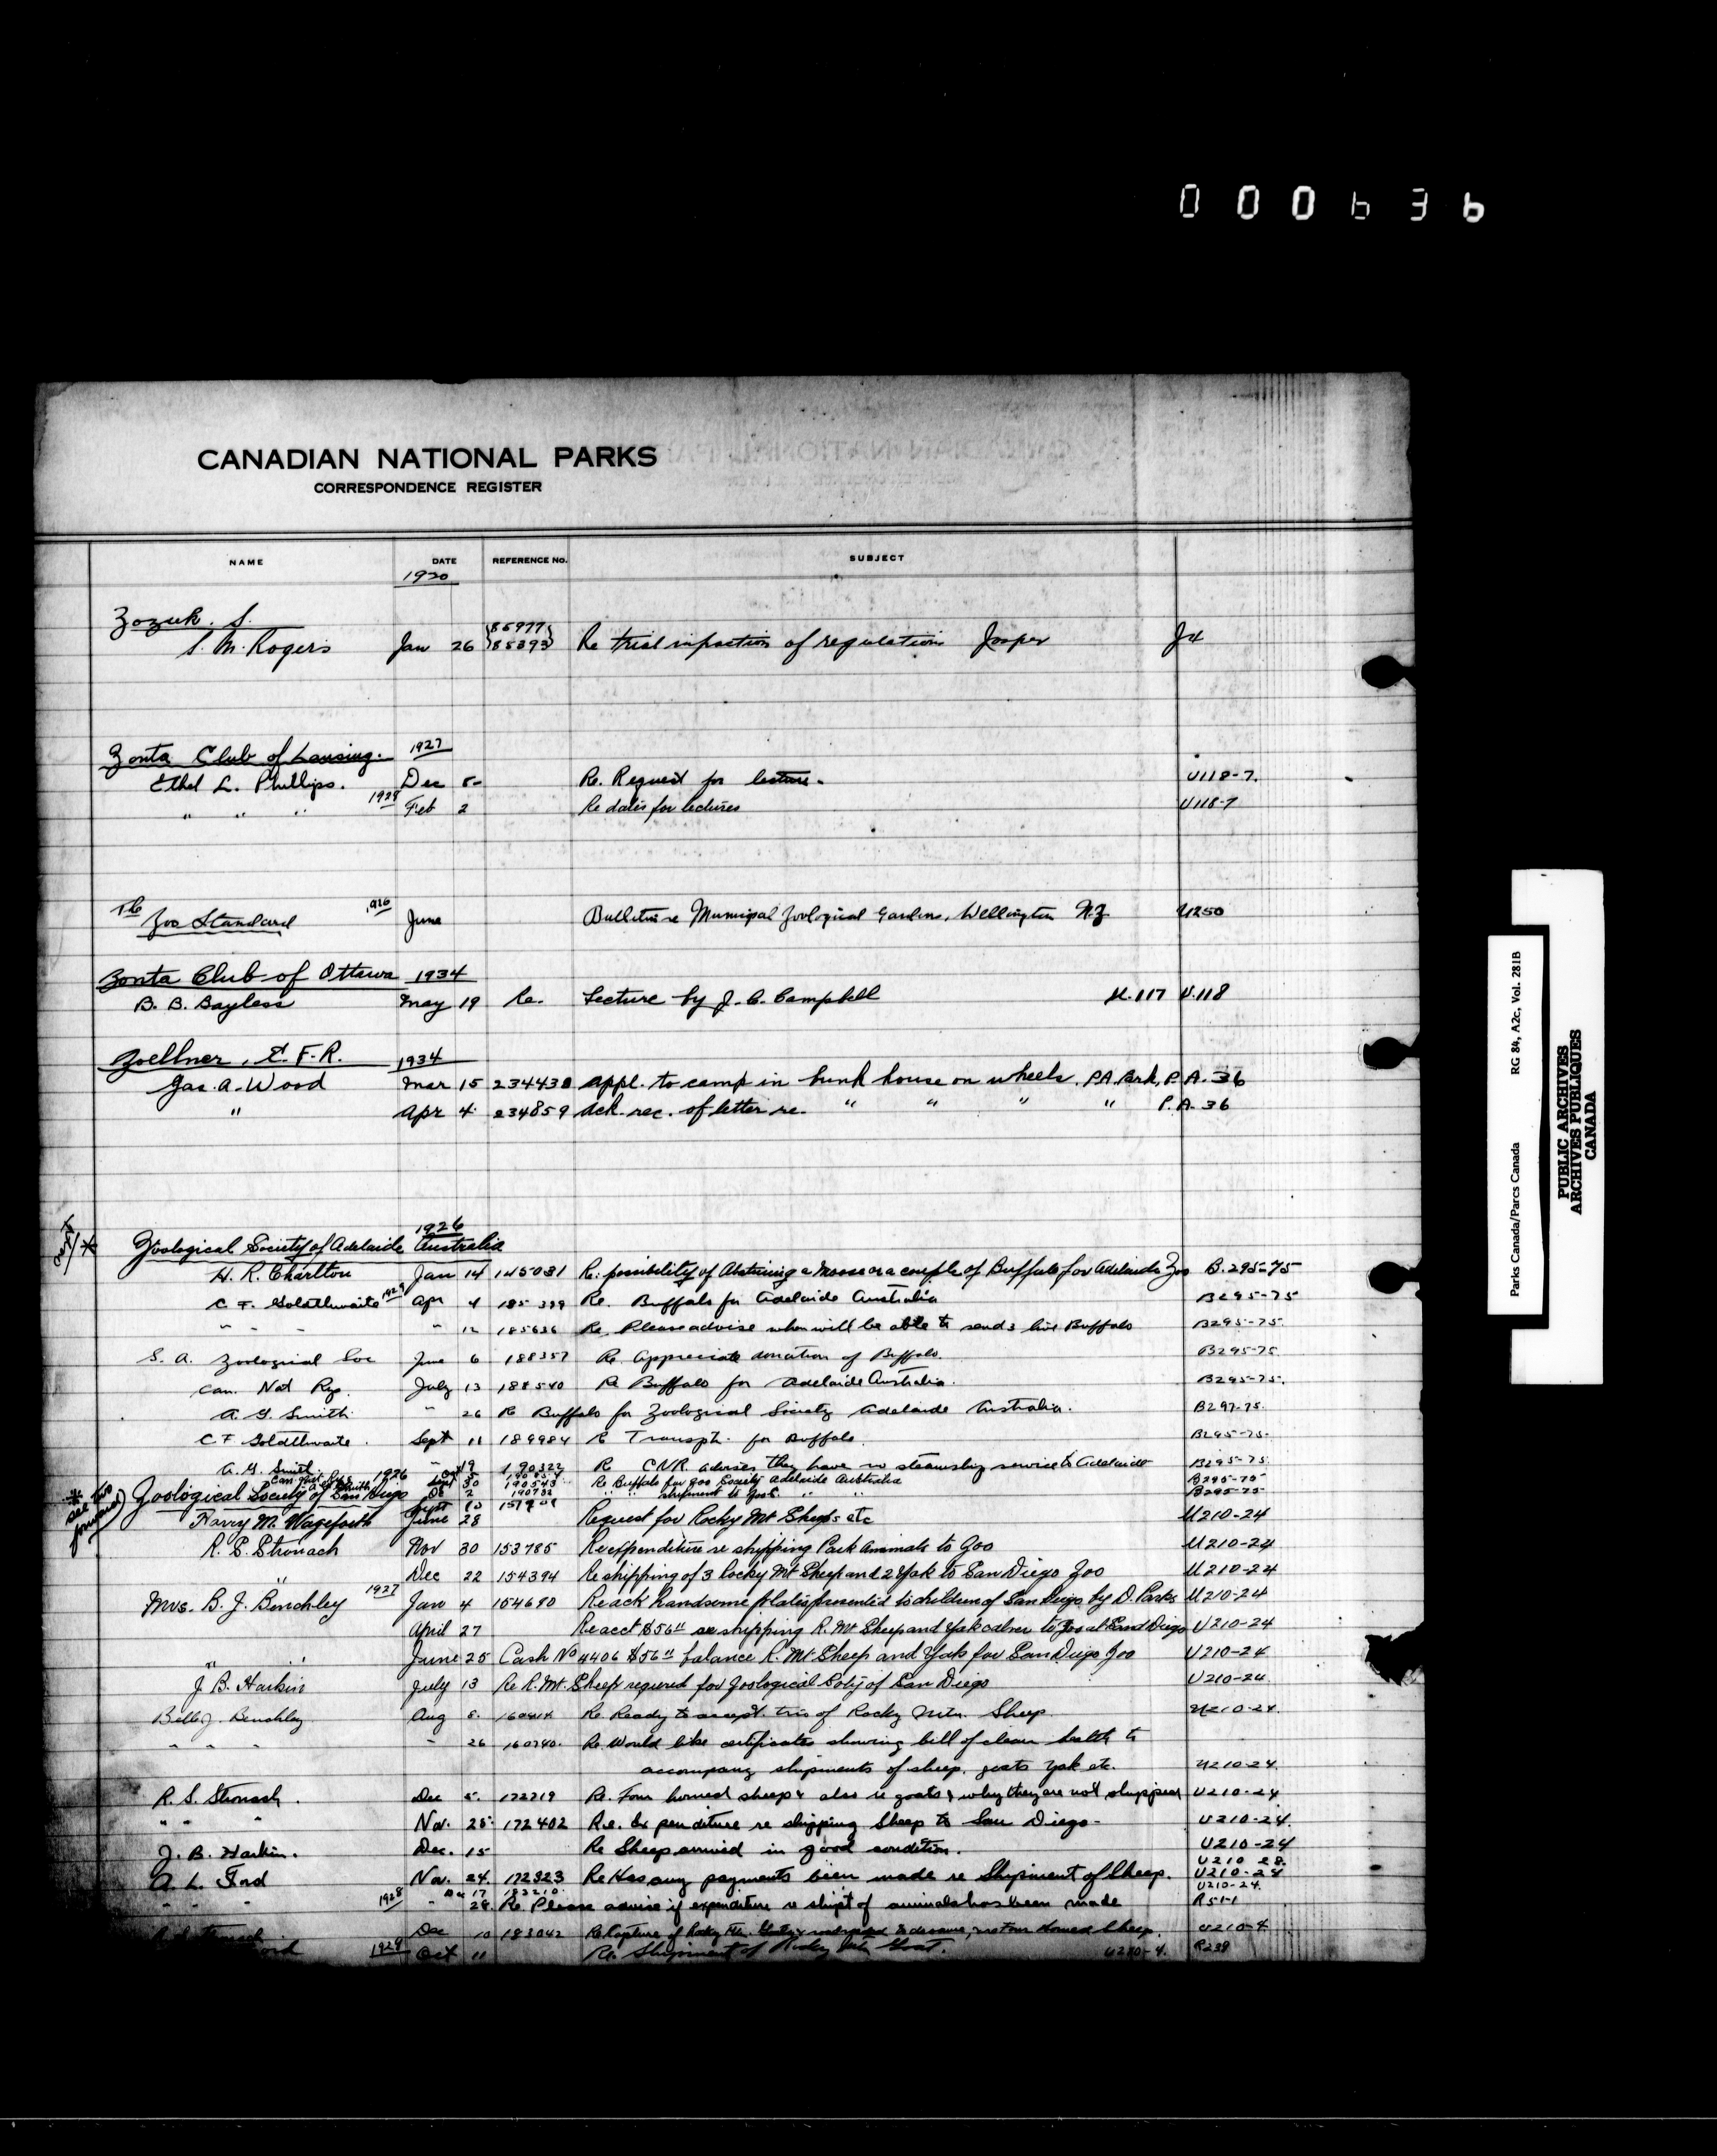 000636
CANADIAN NATIONAL PARKS
CORRESPONDENCE REGISTER
NAME DATE REFERENCE NO. SUBJECT
1920
Zozuk. S.
S. M. Rogers Jan 26 Re trial infraction of regulations Jasper J4
Zonta Club of Lansing. 1927
Ethel L. Phillips. Dec 5 Re. Request for lecture. U118-7.
" " " 1928 Feb 2 Re dates for lectures U118-7
The Zoo Standard 1926 June Bulletin re Municipal Zoological Gardens, Wellington N.Z. U250
Zonta Club of Ottawa 1934
B. B. Bayless May 19 Re. Lecture by J. C. Campbell U.117 U.118
Zoellner, E. F. R. 1934
Jas. A. Wood Mar 15 234438 appl. to camp in bunk house on wheels, P.A. Park, P.A. 36
" Apr 4 234859 ack. rec. of letter re. " " " " P.A. 36
1926
Zoological Society of Adelaide Australia
H. R. Charlton Jan 14 145031 Re: possibility of Obtaining a Moose or a couple of Buffalo for Adelaide Zoo B.295-75
C. F. Goldthwaite 1927 Apr 4 185399 Re. Buffalo for Adelaide Australia B295-75
" " " " 12 185636 Re. Please advise when will be able to send 3 live Buffalo B295-75
S. A. Zoological Soc June 6 188357 Re appreciate donation of Buffalo. B295-75
Can. Nat Ry. July 13 188540 Re Buffalo for Adelaide Australia. B295-75
A. G. Smith " 26 Re Buffalo for Zoological Society Adelaide Australia. B297-75
C F Goldthwaite. Sept 11 189984 Re Transpt. for Buffalo. B295-75
A. G. Smith " 19 190322 Re CNR. advises they have no steamship service to Adelaide B295-75
Re Buffalo for Zoo Society Adelaide Australia B295-75
shipment to " " B295-75
* see two forward
Zoological Society of San Diego 1926
Harry M. Wageforth June 28 Request for Rocky Mt Sheep etc U210-24
R. S. Stronach Nov 30 153785 Re expenditure re shipping Park animals to Zoo U210-24
" Dec 22 154394 Re shipping of 3 Rocky Mt Sheep and 2 Yak to San Diego Zoo U210-24
Mrs. B. J. Benchley 1927 Jan 4 154680 Re ack handsome plates presented to children of San Diego by D. Parks U210-24
April 27 Re acct $56 re shipping R. Mt Sheep and Yak to Zoo at San Diego U210-24
" " June 25 Cash No 4406 $56 balance R. Mt Sheep and Yak for San Diego Zoo U210-24
J. B. Harkin July 13 Re R. Mt. Sheep required for Zoological Soty of San Diego U210-24
Belle J. Benchley Aug 5. Re Ready to accept trio of Rocky Mtn. Sheep U210-24.
" " " " 26 160740. Re Would like certificates showing bill of clean health to
accompany shipments of sheep, goats Yak etc. U210-24.
R. S. Stronach. Dec 5. 172719 Re. Four horned sheep & also re goats & why they are not shipped U210-24
" " " Nov. 25 172402 Re. Expenditure re shipping Sheep to San Diego U210-24.
J. B. Harkin. Dec. 15 Re Sheep arrived in good condition. U210-24
U210 28.
A. L. Ford Nov. 24. 172323 Re Has any payments been made re Shipment of Sheep. U210-24
U210-24.
" " 1928 " 28. Re Please advise if expenditure re shipt of animals has been made R51-1
Dec 10 183042 Re Capture of Rocky Mtn. Goats Horned Sheep. U210-4
1929 Oct 11 Re. Shipment of Rocky Mtn Goat. U210-4. R239
RG 84, A2c, Vol. 281B
Parks Canada/Parcs Canada
PUBLIC ARCHIVES
ARCHIVES PUBLIQUES
CANADA